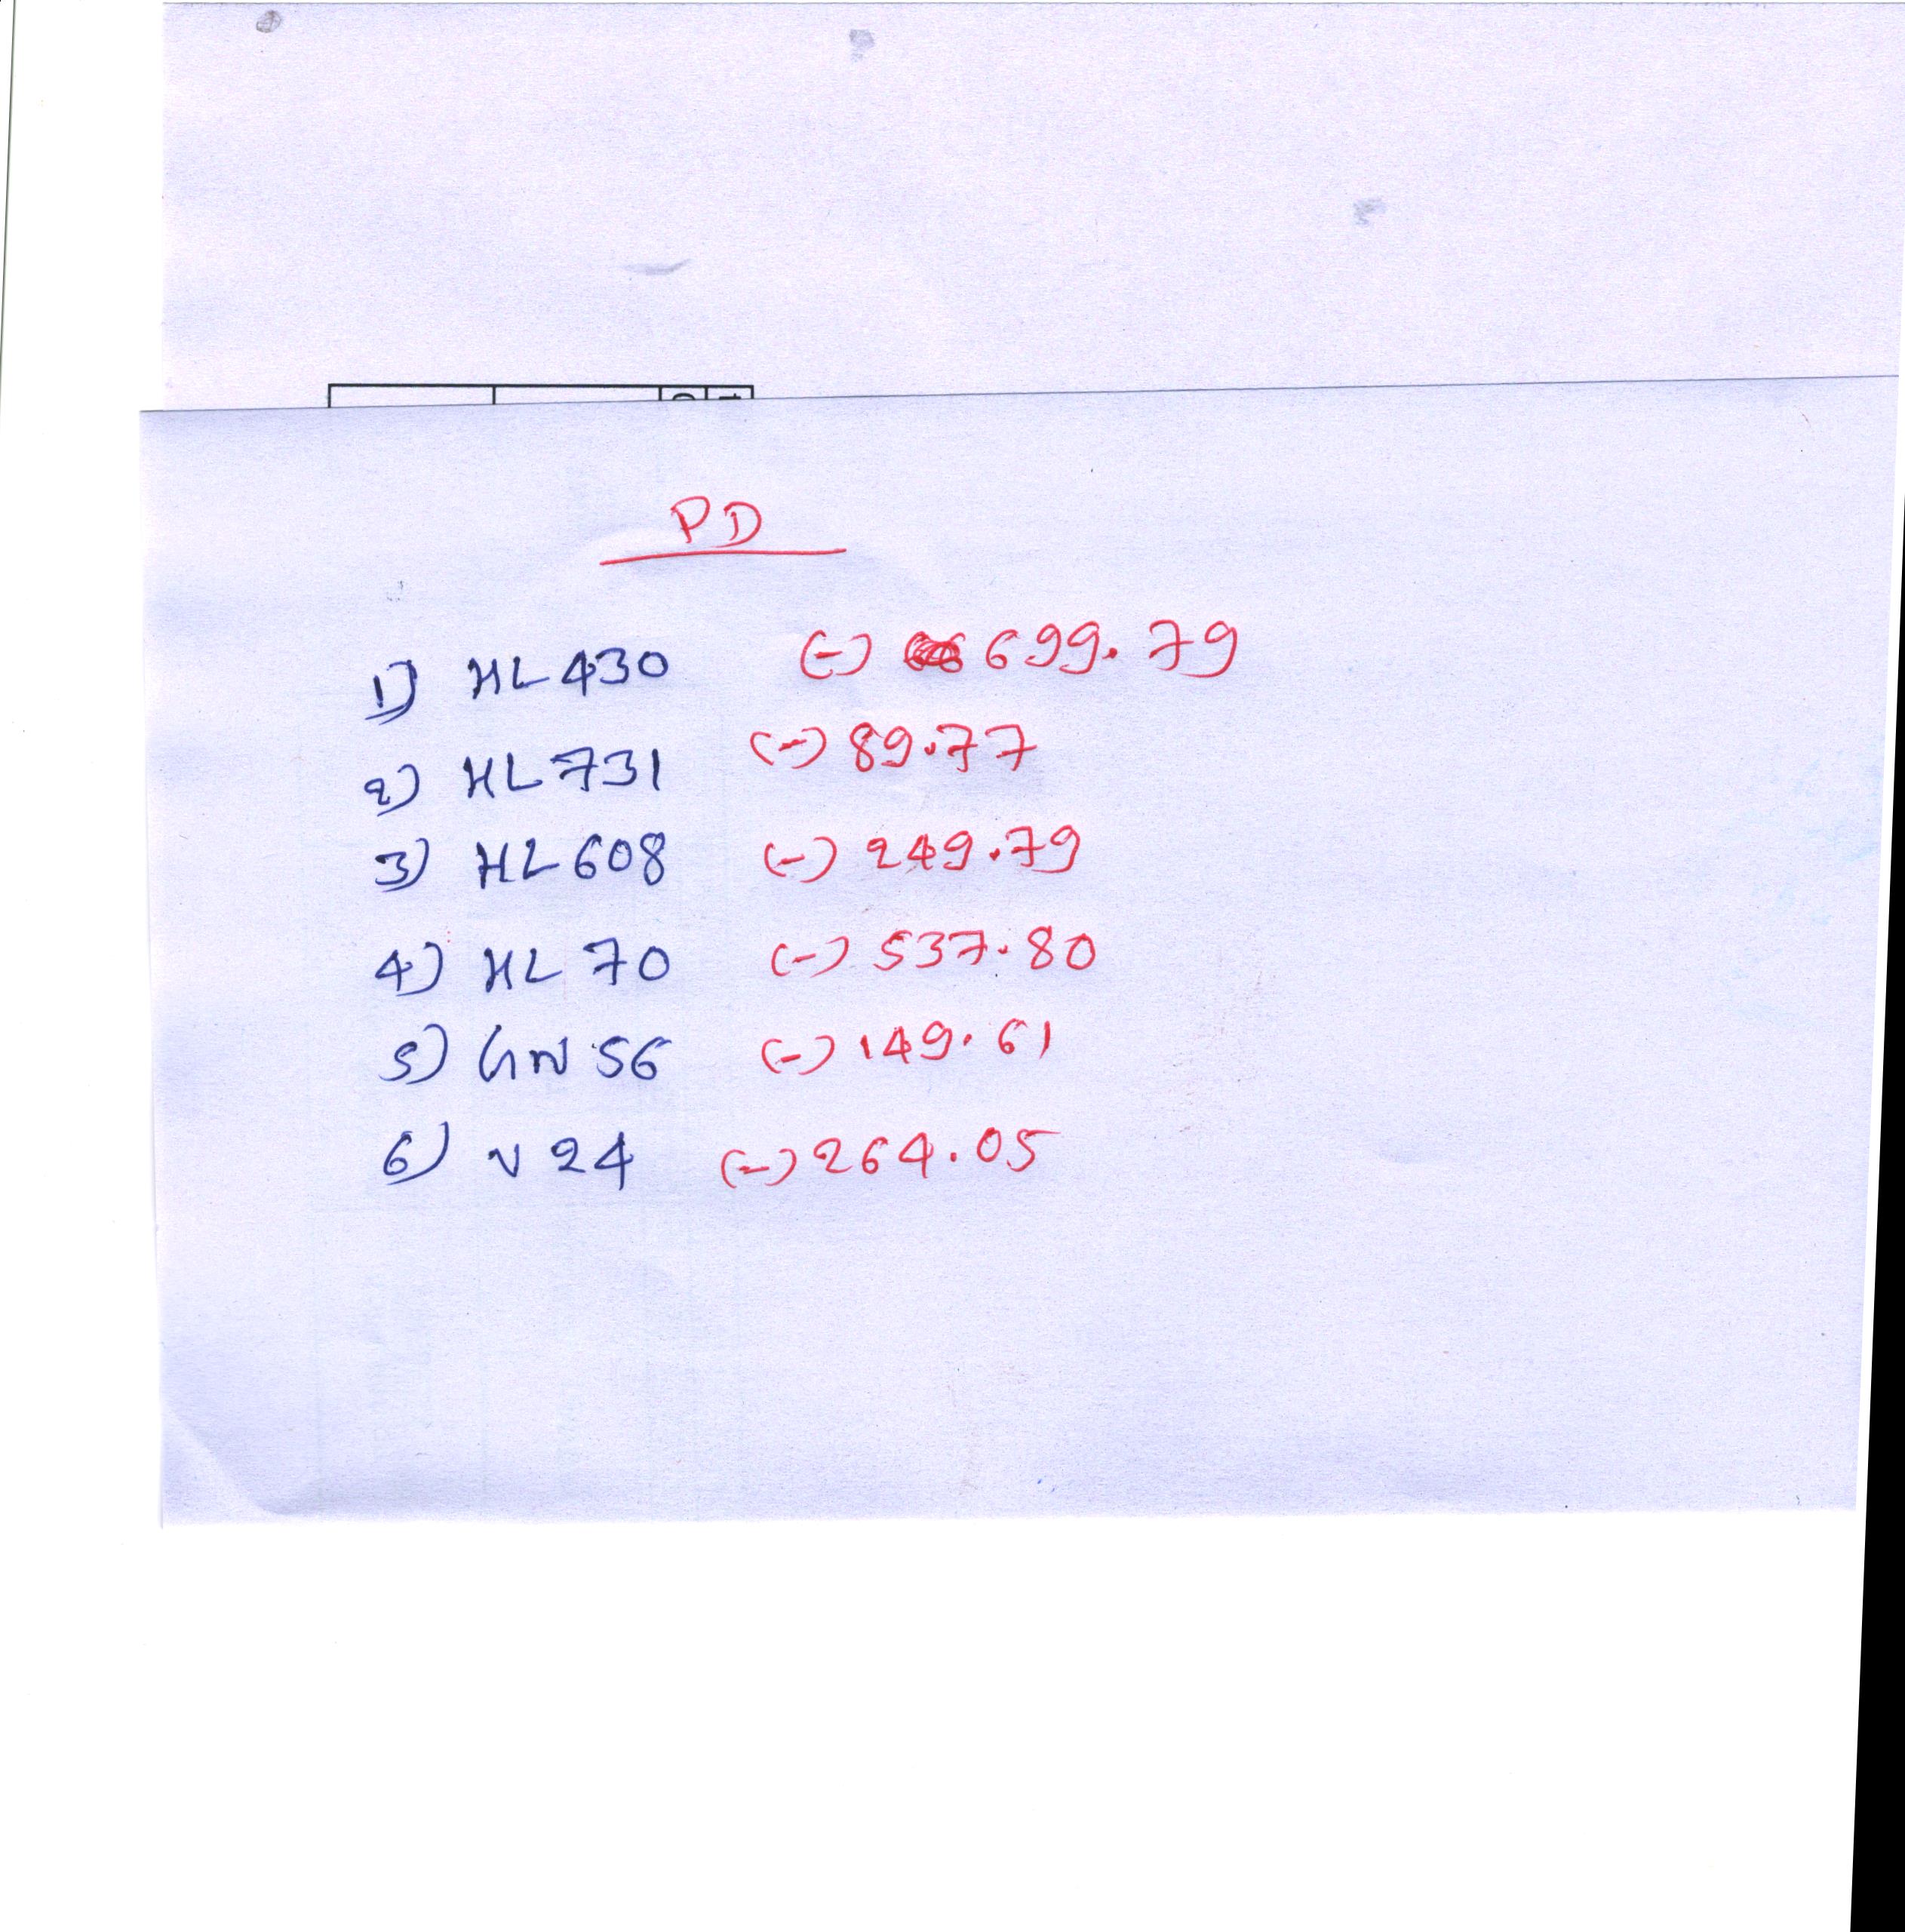 PD
1) HL 430 (-) 699.79
2) HL 731 (-) 89.77
3) HL 608 (-) 249.79
4) HL 70 (-) 537.80
5) GN 56 (-) 149.61
6) V 24 (-) 264.05